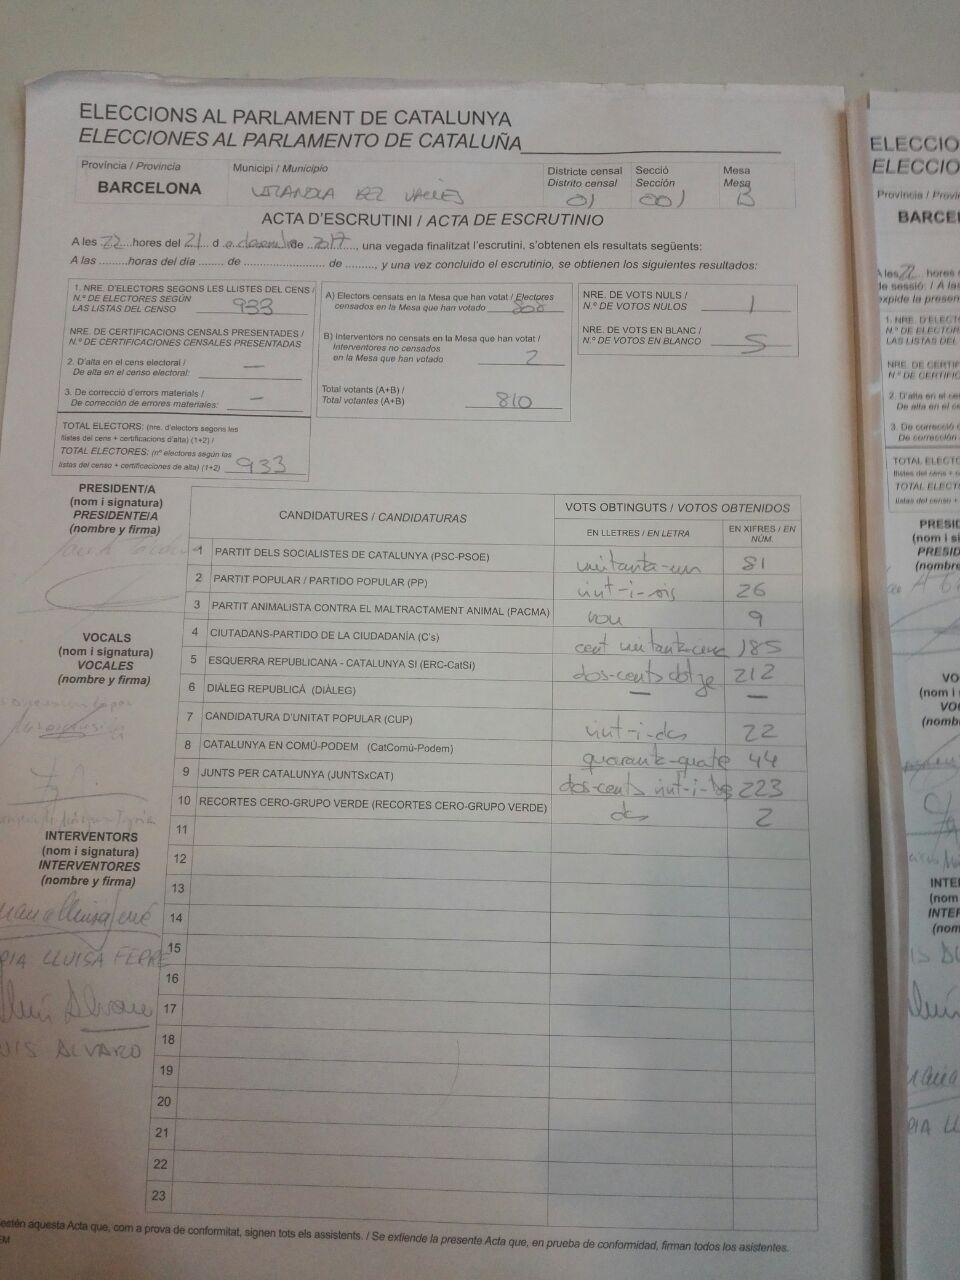 ELECCIONS AL PARLAMENT DE CATALUNYA
ELECCIONES AL PARLAMENTO DE CATALUÑA
Província / Provincia
BARCELONA
Municipi / Municipio
VALLÈS
Districte censal
Distrito censal
01
Secció
Sección
001
Mesa
Mesa
B
ACTA D'ESCRUTINI / ACTA DE ESCRUTINIO
A les 22 hores del 21 d e desembre de 2017, una vegada finalitzat l'escrutini, s'obtenen els resultats següents:
A las .........horas del día ........ de ......................... de ........., y una vez concluido el escrutinio, se obtienen los siguientes resultados:
1. NRE. D'ELECTORS SEGONS LES LLISTES DEL CENS /
N.º DE ELECTORES SEGÚN
LAS LISTAS DEL CENSO 933
NRE. DE CERTIFICACIONS CENSALS PRESENTADES /
N.º DE CERTIFICACIONES CENSALES PRESENTADAS
2. D'alta en el cens electoral /
De alta en el censo electoral: —
3. De correcció d'errors materials /
De corrección de errores materiales: —
TOTAL ELECTORS: (nre. d'electors segons les
llistes del cens + certificacions d'alta) (1+2) /
TOTAL ELECTORES: (nº electores según las
listas del censo + certificaciones de alta) (1+2) 933
A) Electors censats en la Mesa que han votat / Electores
censados en la Mesa que han votado 808
B) Interventors no censats en la Mesa que han votat /
Interventores no censados
en la Mesa que han votado 2
Total votants (A+B) /
Total votantes (A+B) 810
NRE. DE VOTS NULS /
N.º DE VOTOS NULOS 1
NRE. DE VOTS EN BLANC /
N.º DE VOTOS EN BLANCO 5
PRESIDENT/A
(nom i signatura)
PRESIDENTE/A
(nombre y firma)
VOCALS
(nom i signatura)
VOCALES
(nombre y firma)
INTERVENTORS
(nom i signatura)
INTERVENTORES
(nombre y firma)
LLUISA FERRE
ALVARO
CANDIDATURES / CANDIDATURAS
VOTS OBTINGUTS / VOTOS OBTENIDOS
EN LLETRES / EN LETRA
EN XIFRES / EN NÚM.
1 PARTIT DELS SOCIALISTES DE CATALUNYA (PSC-PSOE) vuitanta-un 81
2 PARTIT POPULAR / PARTIDO POPULAR (PP) vint-i-sis 26
3 PARTIT ANIMALISTA CONTRA EL MALTRACTAMENT ANIMAL (PACMA) nou 9
4 CIUTADANS-PARTIDO DE LA CIUDADANÍA (C's) cent vuitanta-cinc 185
5 ESQUERRA REPUBLICANA - CATALUNYA SI (ERC-CatSí) dos-cents dotze 212
6 DIÀLEG REPUBLICÀ (DIÀLEG) — —
7 CANDIDATURA D'UNITAT POPULAR (CUP) vint-i-dos 22
8 CATALUNYA EN COMÚ-PODEM (CatComú-Podem) quaranta-quatre 44
9 JUNTS PER CATALUNYA (JUNTSxCAT) dos-cents vint-i-tres 223
10 RECORTES CERO-GRUPO VERDE (RECORTES CERO-GRUPO VERDE) dos 2
11
12
13
14
15
16
17
18
19
20
21
22
23
estén aquesta Acta que, com a prova de conformitat, signen tots els assistents. / Se extiende la presente Acta que, en prueba de conformidad, firman todos los asistentes.